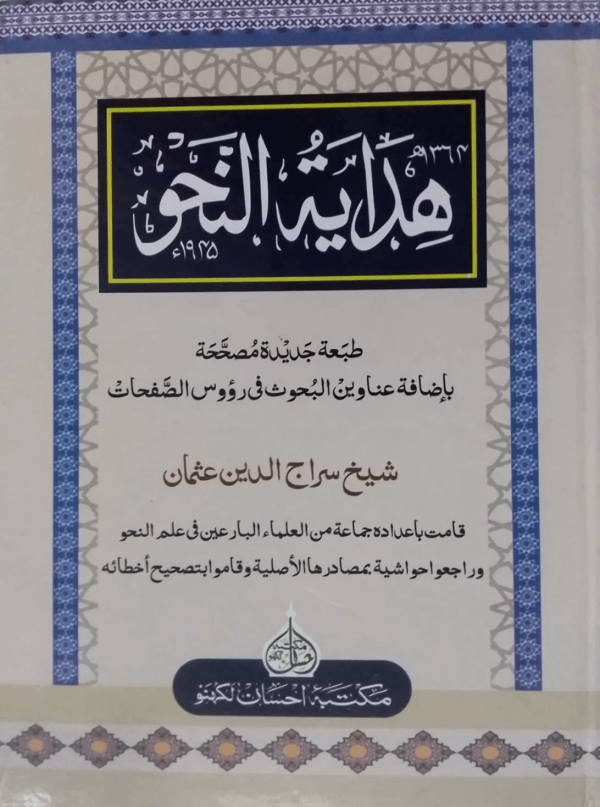 هِدَايَةُ النَّحَوْ
١٣٦٤هـ
١٩٤٥ء
طبَعة جَديْدة مُصحَّحَة
بإضافة عناوين البُحوث فى رؤوس الصَّفحات
شيخ سراج الدين عثمان
قامت باعداده جماعة من العلماء البارعين فى علم النحو
وراجعوا حواشية بمصادرها الأصلية وقاموا بتصحيح أخطائه
مكتبة احسان لكهنو